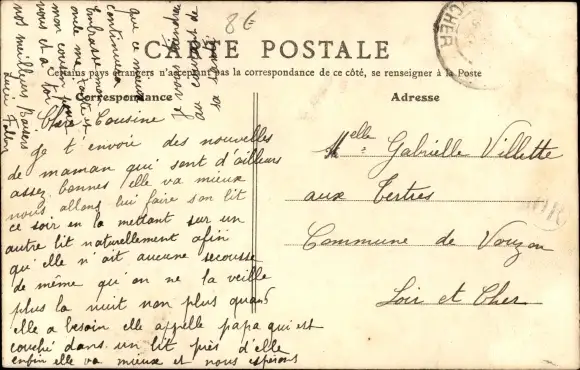 8€
CARTE POSTALE
Certains pays étrangers n'acceptant pas la correspondance de ce côté, se renseigner à la Poste
Correspondance
Adresse
CHER
Chère Cousine
Je t'envoie des nouvelles
de maman qui sont d'ailleurs
assez bonnes elle va mieux
nous allons lui faire son lit
ce soir en la mettant sur un
autre lit naturellement afin
qu'elle n'ait aucune secousse
de même qu'on ne la veille
plus la nuit non plus quand
elle a besoin elle appelle papa qui est
couché dans un lit près d'elle
enfin elle va mieux et nous espérons
que ce mieux
continuera
Embrasse mon
oncle ma tante
mon cousin pour
nous et à toi
nos meilleurs baisers
Melle Gabrielle Villette
aux Tertres
Commune de Vouzon
Loir et Cher